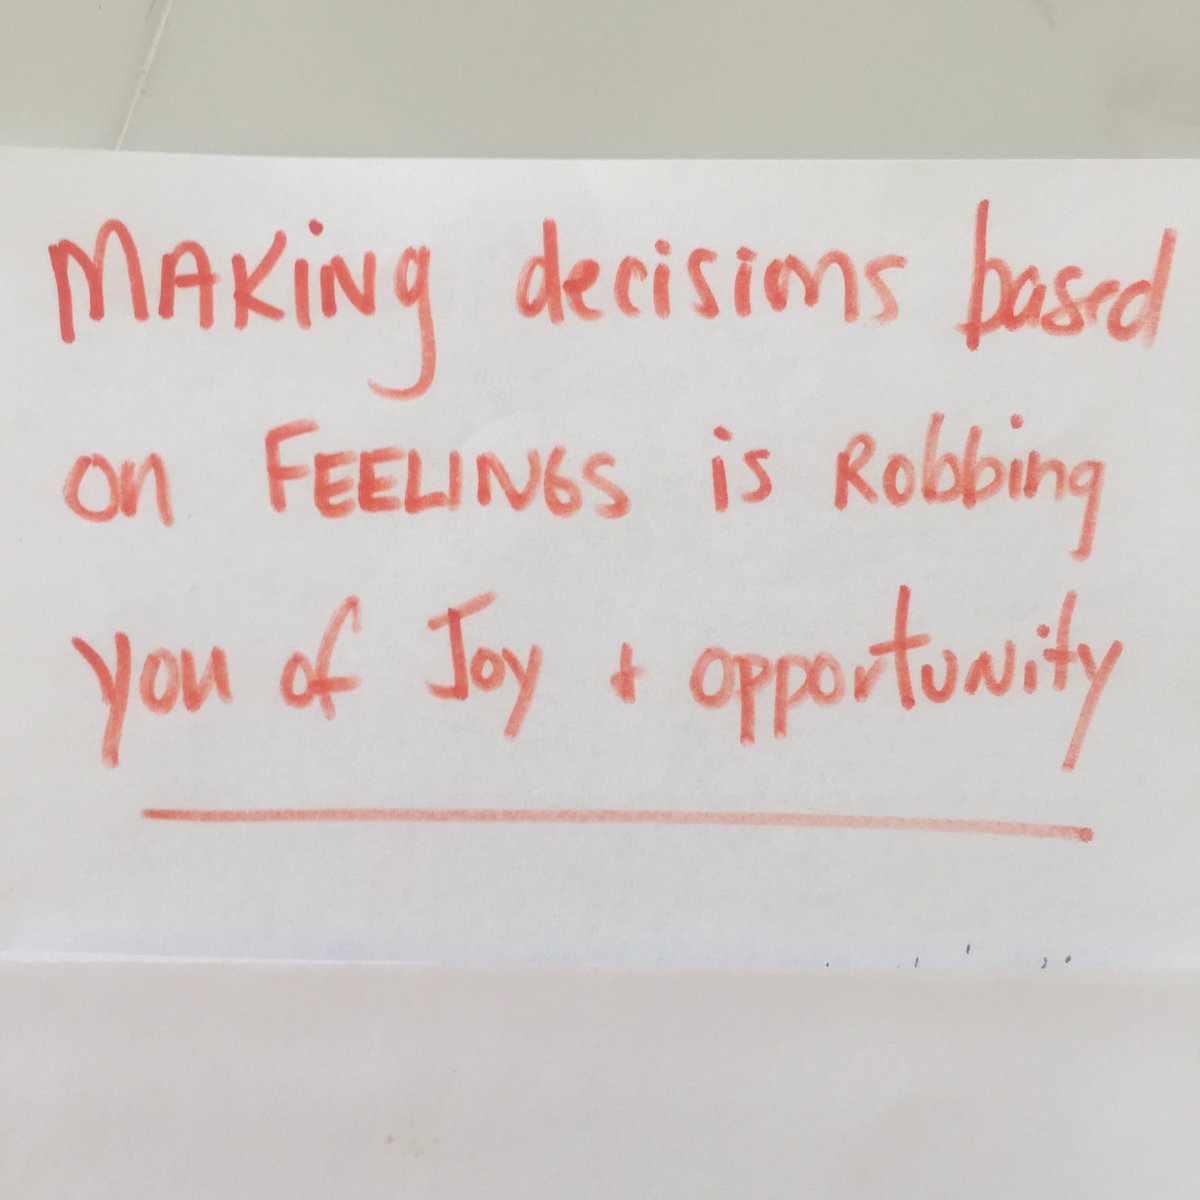 MAKiNg decisions based
on FEELINGS is Robbing
you of Joy + opportuNity